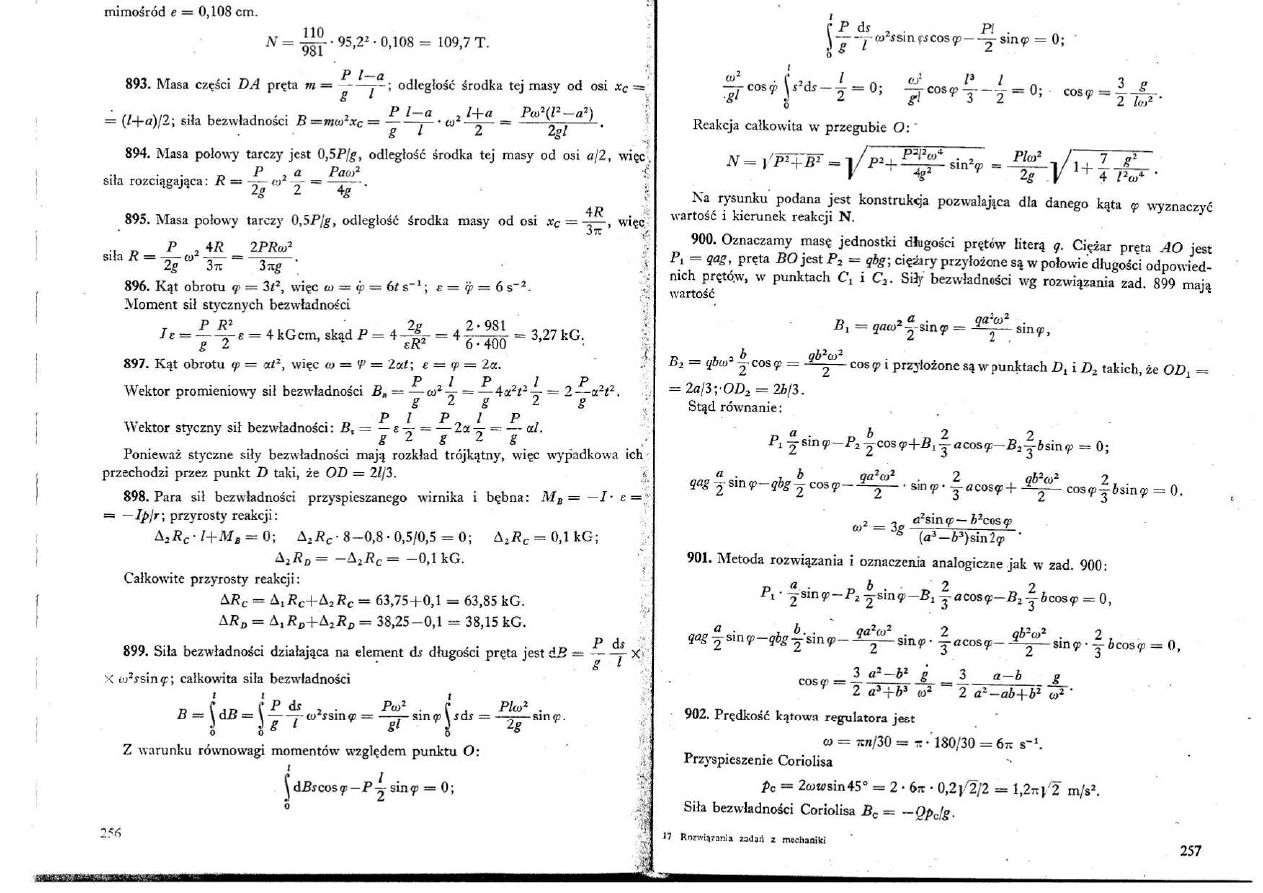 mimośród e = 0,108 cm.
N = 110/981 · 95,2² · 0,108 = 109,7 T.
893. Masa części DA pręta m = P/g (l—a)/l; odległość środka tej masy od osi x_C =
= (l+a)/2; siła bezwładności B = mω²x_C = P/g (l—a)/l · ω² (l+a)/2 = Pω²(l²—a²)/2gl.
894. Masa połowy tarczy jest 0,5P/g, odległość środka tej masy od osi a/2, więc
siła rozciągająca: R = P/2g ω² a/2 = Paω²/4g.
895. Masa połowy tarczy 0,5P/g, odległość środka masy od osi x_C = 4R/3π, więc
siła R = P/2g ω² 4R/3π = 2PRω²/3πg.
896. Kąt obrotu φ = 3t², więc ω = φ̇ = 6t s⁻¹; ε = φ̈ = 6 s⁻².
Moment sił stycznych bezwładności
Iε = P/g R²/2 ε = 4 kGcm, skąd P = 4 2g/εR² = 4 2·981/6·400 = 3,27 kG.
897. Kąt obrotu φ = αt², więc ω = φ = 2αt; ε = φ = 2α.
Wektor promieniowy sił bezwładności Bₙ = P/g ω² l/2 = P/g 4α²t² l/2 = 2 P/g α²t².
Wektor styczny sił bezwładności: B_t = P/g ε l/2 = P/g 2α l/2 = P/g αl.
Ponieważ styczne siły bezwładności mają rozkład trójkątny, więc wypadkowa ich
przechodzi przez punkt D taki, że OD = 2l/3.
898. Para sił bezwładności przyspieszanego wirnika i bębna: M_B = —I· ε =
= —Ip/r; przyrosty reakcji:
Δ₂R_C· l+M_B = 0; Δ₂R_C· 8—0,8· 0,5/0,5 = 0; Δ₂R_C = 0,1 kG;
Δ₂R_D = —Δ₂R_C = —0,1 kG.
Całkowite przyrosty reakcji:
ΔR_C = Δ₁R_C+Δ₂R_C = 63,75+0,1 = 63,85 kG.
ΔR_D = Δ₁R_D+Δ₂R_D = 38,25—0,1 = 38,15 kG.
899. Siła bezwładności działająca na element ds długości pręta jest dB = P/g ds/l ×
× ω²s sin φ; całkowita siła bezwładności
B = ∫₀ˡ dB = ∫₀ˡ P/g ds/l ω²s sin φ = Pω²/gl sin φ ∫₀ˡ s ds = Plω²/2g sin φ.
Z warunku równowagi momentów względem punktu O:
∫₀ˡ dBs cos φ—P l/2 sin φ = 0;
256
∫₀ˡ P/g ds/l ω²s sin φ s cos φ — Pl/2 sin φ = 0;
ω²/gl cos φ ∫₀ˡ s²ds — l/2 = 0; ω²/gl cos φ l³/3 — l/2 = 0; cos φ = 3/2 g/lω².
Reakcja całkowita w przegubie O:
N = √(P²+B²) = √(P²+ P²l²ω⁴/4g² sin²φ) = Plω²/2g √(1+ 7/4 g²/l²ω⁴).
Na rysunku podana jest konstrukcja pozwalająca dla danego kąta φ wyznaczyć
wartość i kierunek reakcji N.
900. Oznaczamy masę jednostki długości prętów literą q. Ciężar pręta AO jest
P₁ = qag, pręta BO jest P₂ = qbg; ciężary przyłożone są w połowie długości odpowied-
nich prętów, w punktach C₁ i C₂. Siły bezwładności wg rozwiązania zad. 899 mają
wartość
B₁ = qaω² a/2 sin φ = qa²ω²/2 sin φ,
B₂ = qbω² b/2 cos φ = qb²ω²/2 cos φ i przyłożone są w punktach D₁ i D₂ takich, że OD₁ =
= 2a/3; OD₂ = 2b/3.
Stąd równanie:
P₁ a/2 sin φ—P₂ b/2 cos φ+B₁ 2/3 a cos φ—B₂ 2/3 b sin φ = 0;
qag a/2 sin φ—qbg b/2 cos φ— qa²ω²/2 · sin φ· 2/3 a cos φ+ qb²ω²/2 cos φ 2/3 b sin φ = 0.
ω² = 3g (a²sin φ — b²cos φ)/((a³—b³) sin 2φ).
901. Metoda rozwiązania i oznaczenia analogiczne jak w zad. 900:
P₁· a/2 sin φ—P₂ b/2 sin φ—B₁ 2/3 a cos φ—B₂ 2/3 b cos φ = 0,
qag a/2 sin φ—qbg b/2 sin φ— qa²ω²/2 sin φ· 2/3 a cos φ— qb²ω²/2 sin φ· 2/3 b cos φ = 0,
cos φ = 3/2 (a²—b²)/(a³+b³) g/ω² = 3/2 (a—b)/(a²—ab+b²) g/ω².
902. Prędkość kątowa regulatora jest
ω = πn/30 = π· 180/30 = 6π s⁻¹.
Przyspieszenie Coriolisa
p_c = 2ωw sin 45° = 2 · 6π · 0,2√2/2 = 1,2π√2 m/s².
Siła bezwładności Coriolisa B_C = —Qp_c/g.
17 Rozwiązania zadań z mechaniki
257